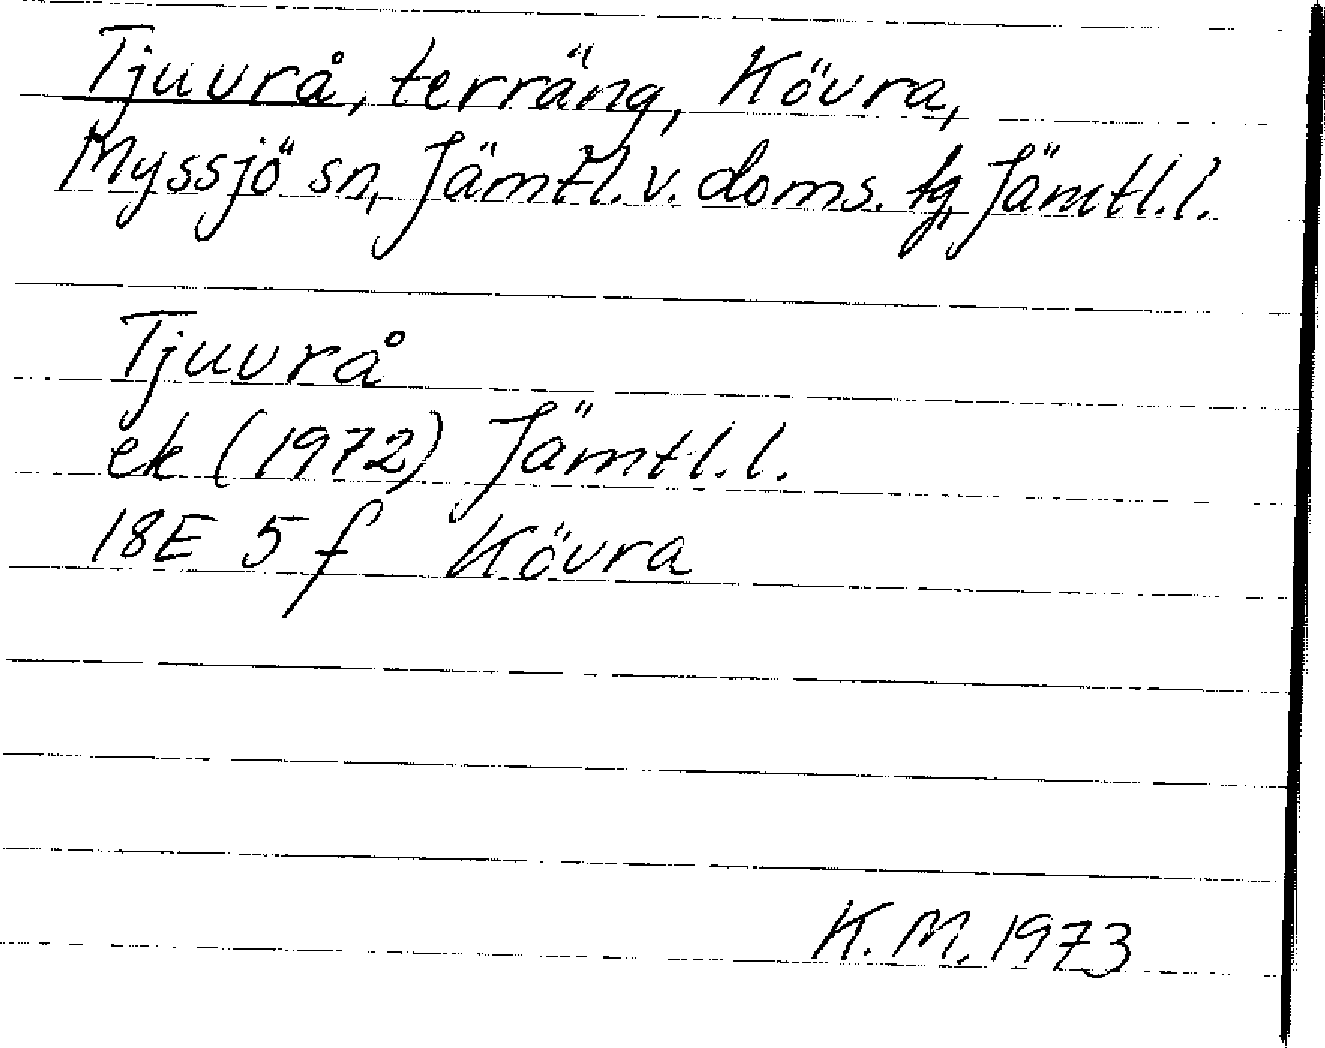 Tjuvrå, terräng, Kövra,
Myssjö sn, Jämtl. v. doms. tg, Jämtl. l.
Tjuvrå
ek (1972) Jämtl. l.
18E 5f Kövra
K. M. 1973